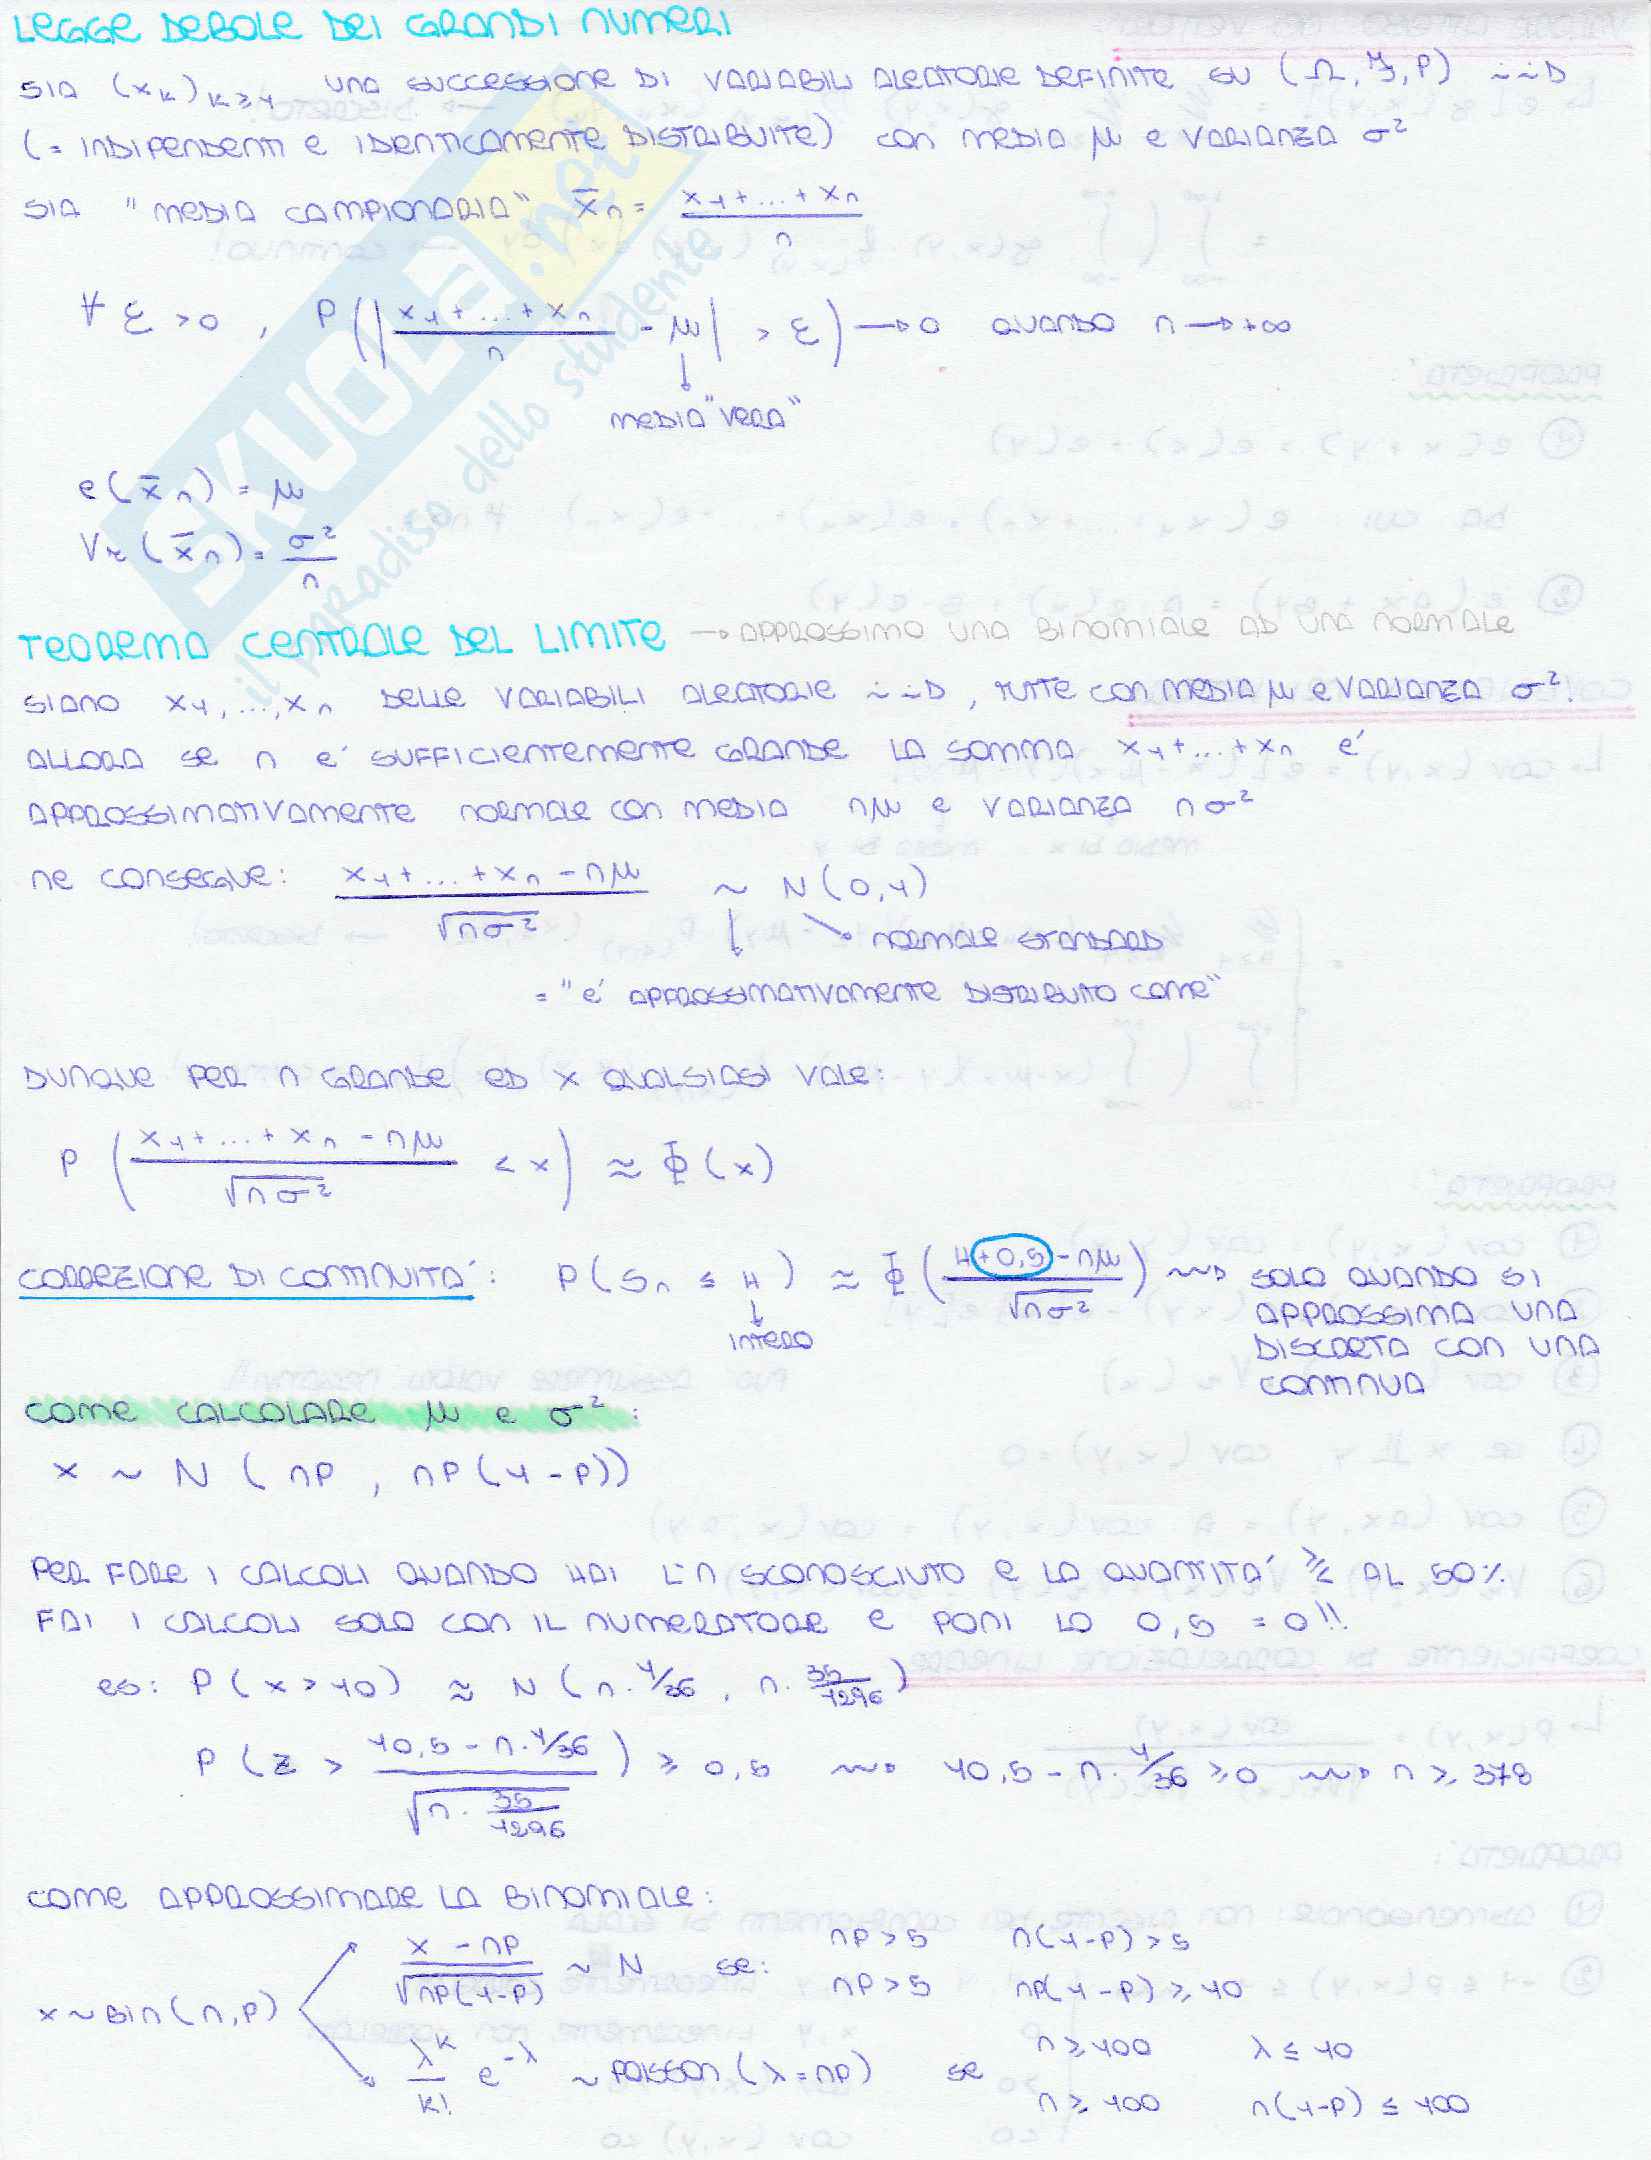 LEGGE DEBOLE DEI GRANDI NUMERI
SIA (X_k)_{k≥1} UNA SUCCESSIONE DI VARIABILI ALEATORIE DEFINITE SU (Ω, F, P) iiD
(= INDIPENDENTI E IDENTICAMENTE DISTRIBUITE) CON MEDIA μ E VARIANZA σ²
SIA "MEDIA CAMPIONARIA" X̄_n = (X_1 + ... + X_n)/n
∀ ε > 0 , P(|(X_1 + ... + X_n)/n - μ| > ε) → 0 QUANDO n → +∞
MEDIA "VERA"
E(X̄_n) = μ
Var(X̄_n) = σ²/n
TEOREMA CENTRALE DEL LIMITE → APPROSSIMO UNA BINOMIALE AD UNA NORMALE
SIANO X_1, ..., X_n DELLE VARIABILI ALEATORIE iiD, TUTTE CON MEDIA μ E VARIANZA σ².
ALLORA SE n E' SUFFICIENTEMENTE GRANDE LA SOMMA X_1 + ... + X_n E'
APPROSSIMATIVAMENTE NORMALE CON MEDIA nμ E VARIANZA nσ²
NE CONSEGUE: (X_1 + ... + X_n - nμ)/√(nσ²) ~ N(0,1)
NORMALE STANDARD
= "E' APPROSSIMATIVAMENTE DISTRIBUITO COME"
DUNQUE PER n GRANDE ED X QUALSIASI VALE:
P((X_1 + ... + X_n - nμ)/√(nσ²) < x) ≈ Φ(x)
CORREZIONE DI CONTINUITA': P(S_n ≤ H) ≈ Φ((H + 0,5 - nμ)/√(nσ²)) ⇝ SOLO QUANDO SI
INTERO
APPROSSIMA UNA
DISCRETA CON UNA
CONTINUA
COME CALCOLARE μ E σ²:
X ~ N(np, np(1-p))
PER FARE I CALCOLI QUANDO HAI L'n SCONOSCIUTO E LA QUANTITA' ≥ AL 50%
FAI I CALCOLI SOLO CON IL NUMERATORE E PONI LO 0,5 = 0!!
ES: P(X > 10) ≈ N(n·1/36, n·35/1296)
P(Z > (10,5 - n·1/36)/√(n·35/1296)) ≥ 0,5 ⇝ 10,5 - n·1/36 ≥ 0 ⇝ n ≥ 378
COME APPROSSIMARE LA BINOMIALE:
X ~ BIN(n,p)
(X - np)/√(np(1-p)) ~ N SE: np > 5 n(1-p) > 5
np > 5 np(1-p) ≥ 10
λ^k/k! e^{-λ} ~ POISSON (λ = np) SE n ≥ 100 λ ≤ 10
n ≥ 100 n(1-p) ≤ 100
SKUOLA.net
il paradiso dello studente